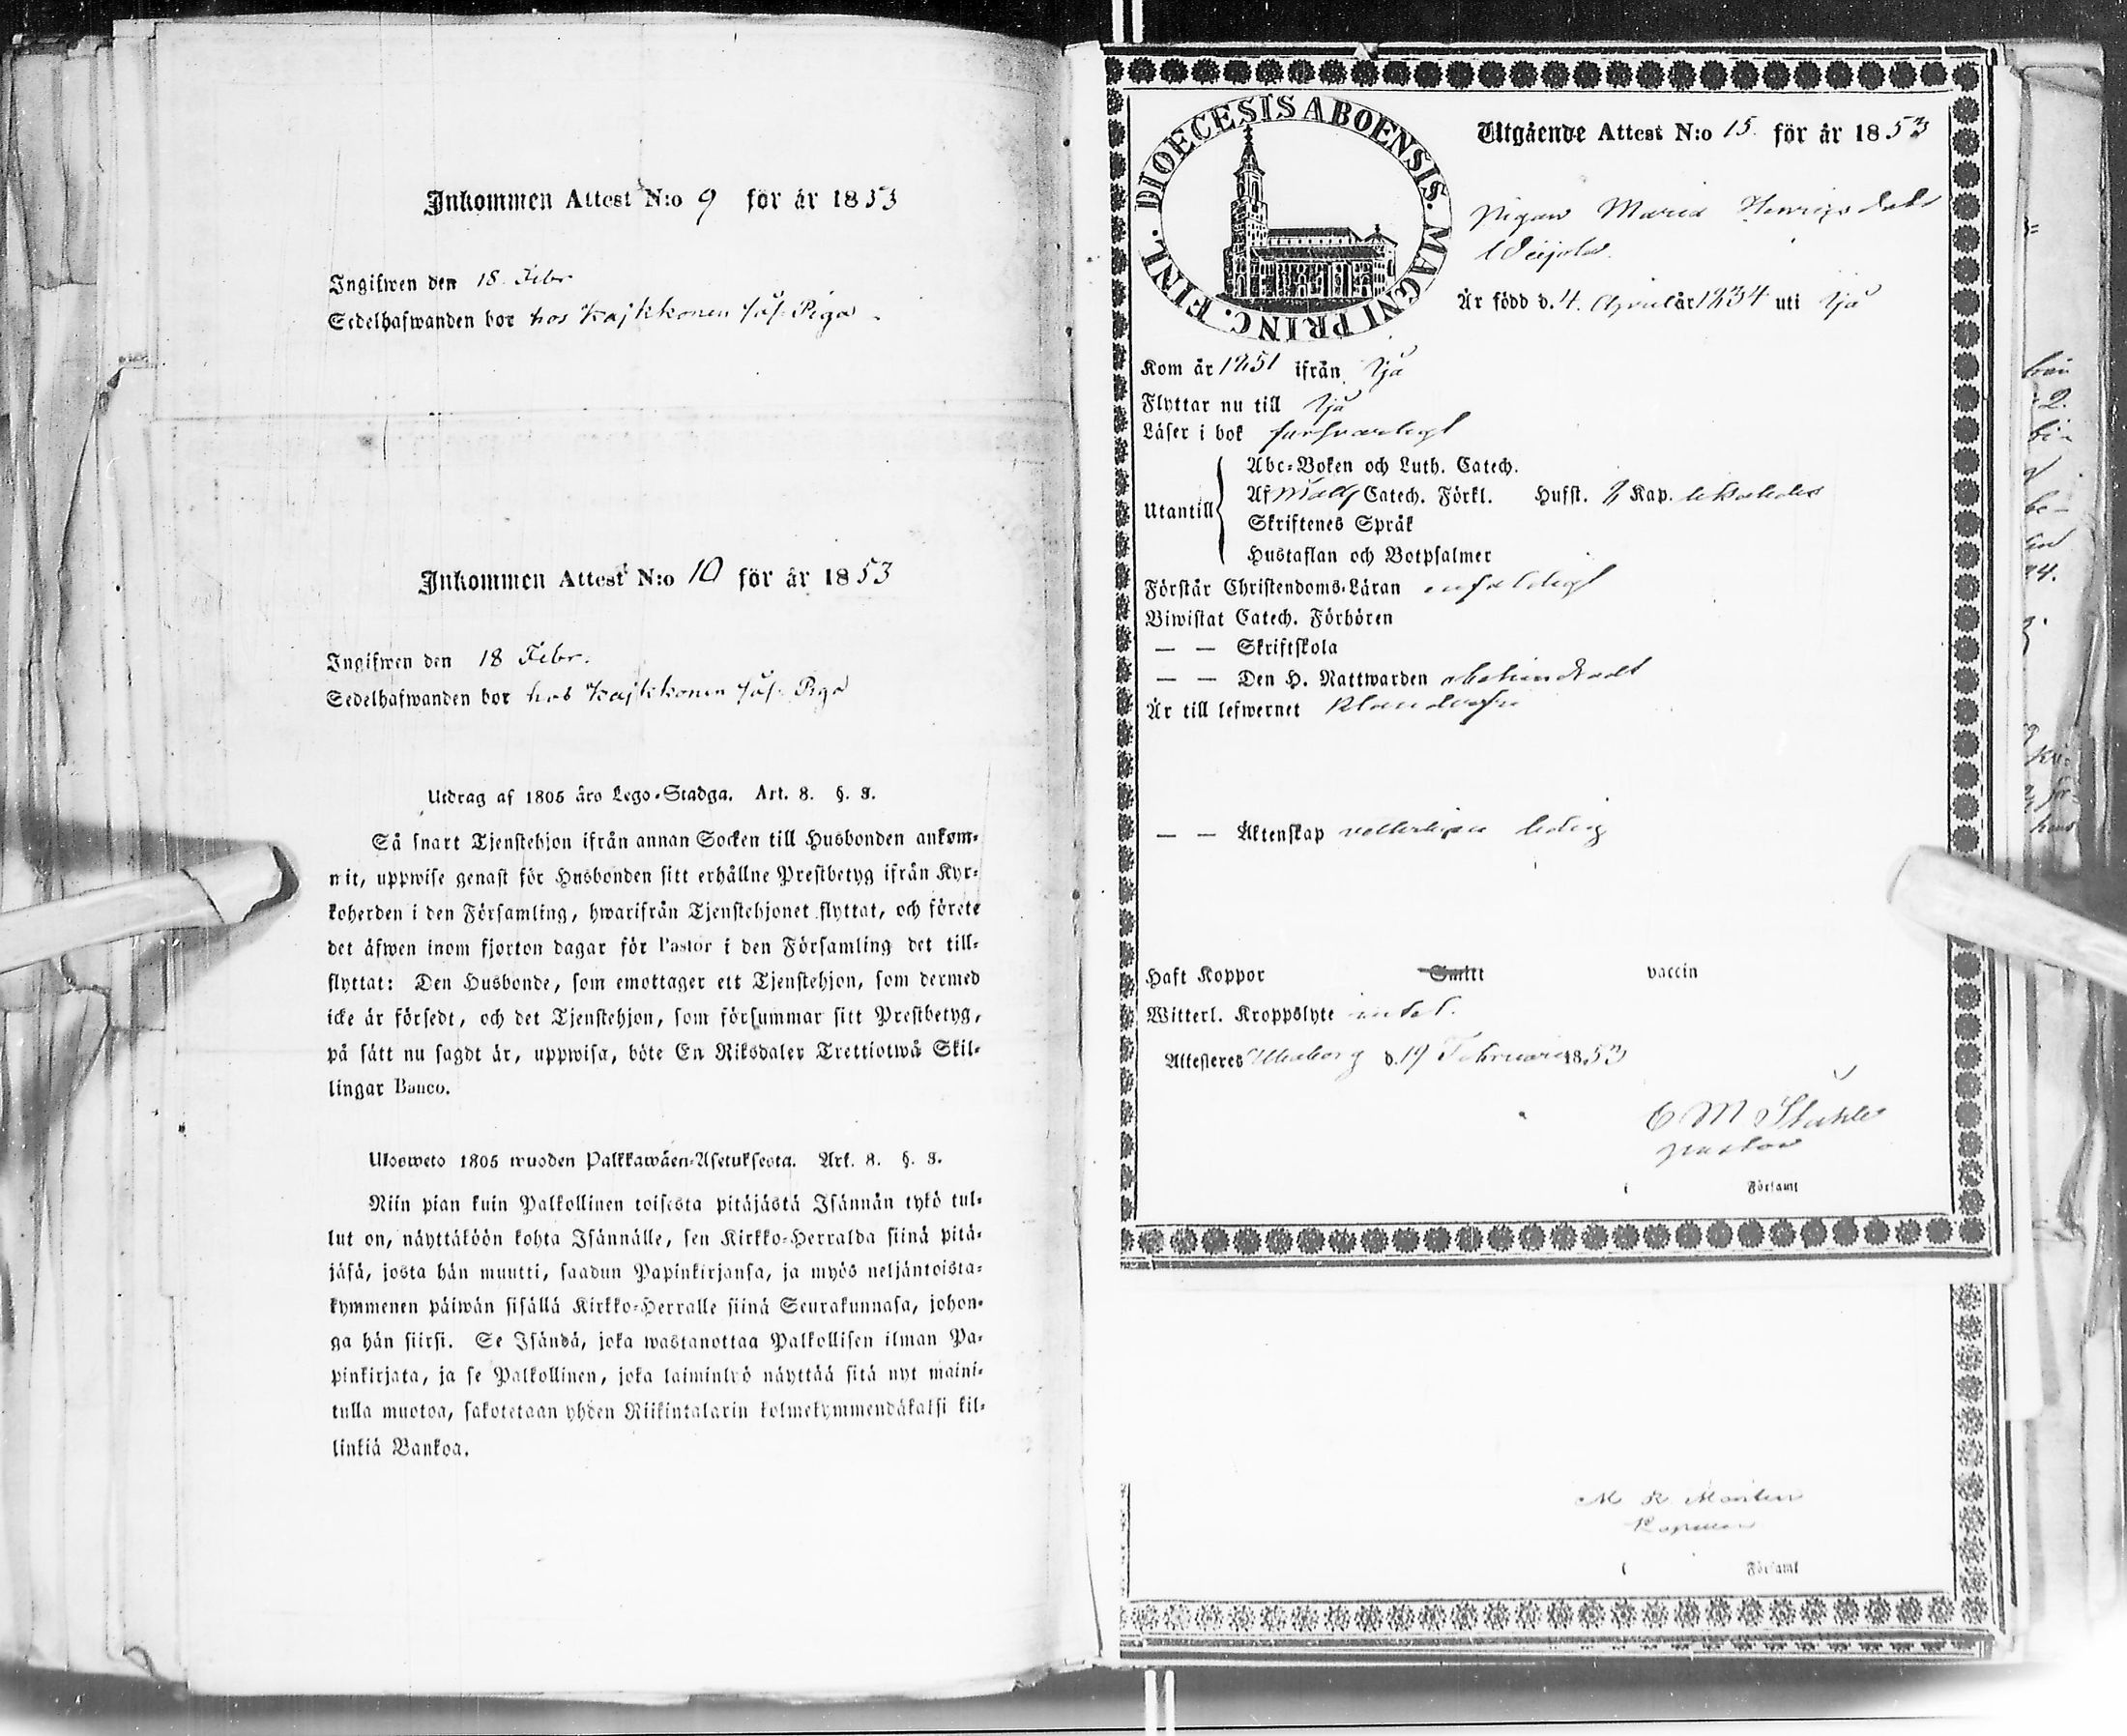 Inkommen Attest N:o 9 för år 1853
Ingifwen den 18 Febr
Sedelhafwanden bor hos Kajkkonen såf. Piga
Inkommen Attest N:o 10 för år 1853
Ingifwen den 18 Febr.
Sedelhafwanden bor hos Kajkkonen såf. Piga
Utdrag af 1805 års Lego-Stadga. Art. 8. §. 3.
Så snart Tjenstehjon ifrån annan Socken till Husbonden ankom-
mit, uppwise genast för Husbonden sitt erhållne Prestbetyg ifrån Kyr-
koherden i den Församling, hwarifrån Tjenstehjonet flyttat, och förete
det äfwen inom fjorton dagar för Pastor i den Församling det till-
flyttat: Den Husbonde, som emottager ett Tjenstehjon, som dermed
icke är försedt, och det Tjenstehjon, som försummar sitt Prestbetyg,
på sätt nu sagdt är, uppwisa, böte En Riksdaler Trettiotwå Skil-
lingar Banco.
Uloosweto 1805 wuoden Palkkawäen-Asetuksesta. Art. 8. §. 3.
Niin pian kuin Palkollinen toisesta pitäjästä Isännän tykö tul-
lut on, näyttäköön kohta Isännälle, sen Kirkko-Herralda siinä pitä-
jäsä, josta hän muutti, saadun Papinkirjansa, ja myös neljäntoista-
kymmenen päiwän sisällä Kirkko-Herralle siinä Seurakunnasa, johon-
ga hän siirsi. Se Isändä, joka wastanottaa Palkollisen ilman Pa-
pinkirjata, ja se Palkollinen, joka laiminlyö näyttää sitä nyt maini-
tulla muotoa, sakotetaan yhden Riikintalarin kolmekymmendäkaksi kil-
linkiä Bankoa.
DIOECESIS ABOENSIS. MAGNI PRINC. FINL.
Utgående Attest N:o 15. för år 1853
Pigan Maria Henricsdotr
Weijola
Är född d. 4. April år 1834 uti Ijå
Kom år 1851 ifrån Ijå
Flyttar nu till Ijå
Läser i bok försvarligt
Utantill
Abc-Boken och Luth. Catech.
Af Catech. Förkl. Hufst. Kap.
Skriftenes Språk
Hustaflan och Botpsalmer
Förstår Christendoms-Läran enfaldigt
Biwistat Catech. Förhören
— — Skriftskola
— — Den H. Nattwarden obehindradt
Är till lefwernet klanderfri
— — Äktenskap vetterligen ledig
Haft Koppor Smitt vaccin
Witterl. Kroppslyte intet.
Attesteres Uleåborg d. 19 Februarii 1853
C M Ståhle
pastor
i Församl
M R
Kaplan
i Församl